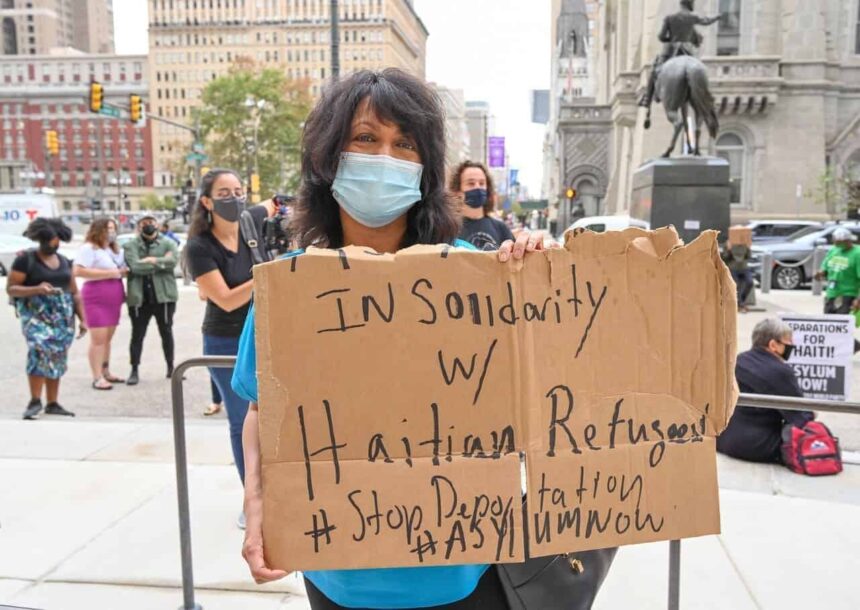 IN Solidarity
w/
Haitian Refugees
#Stop Deportation
#ASYlUMNOW
EPARATIONS
FOR
HAITI!
SYLUM
NOW!
10